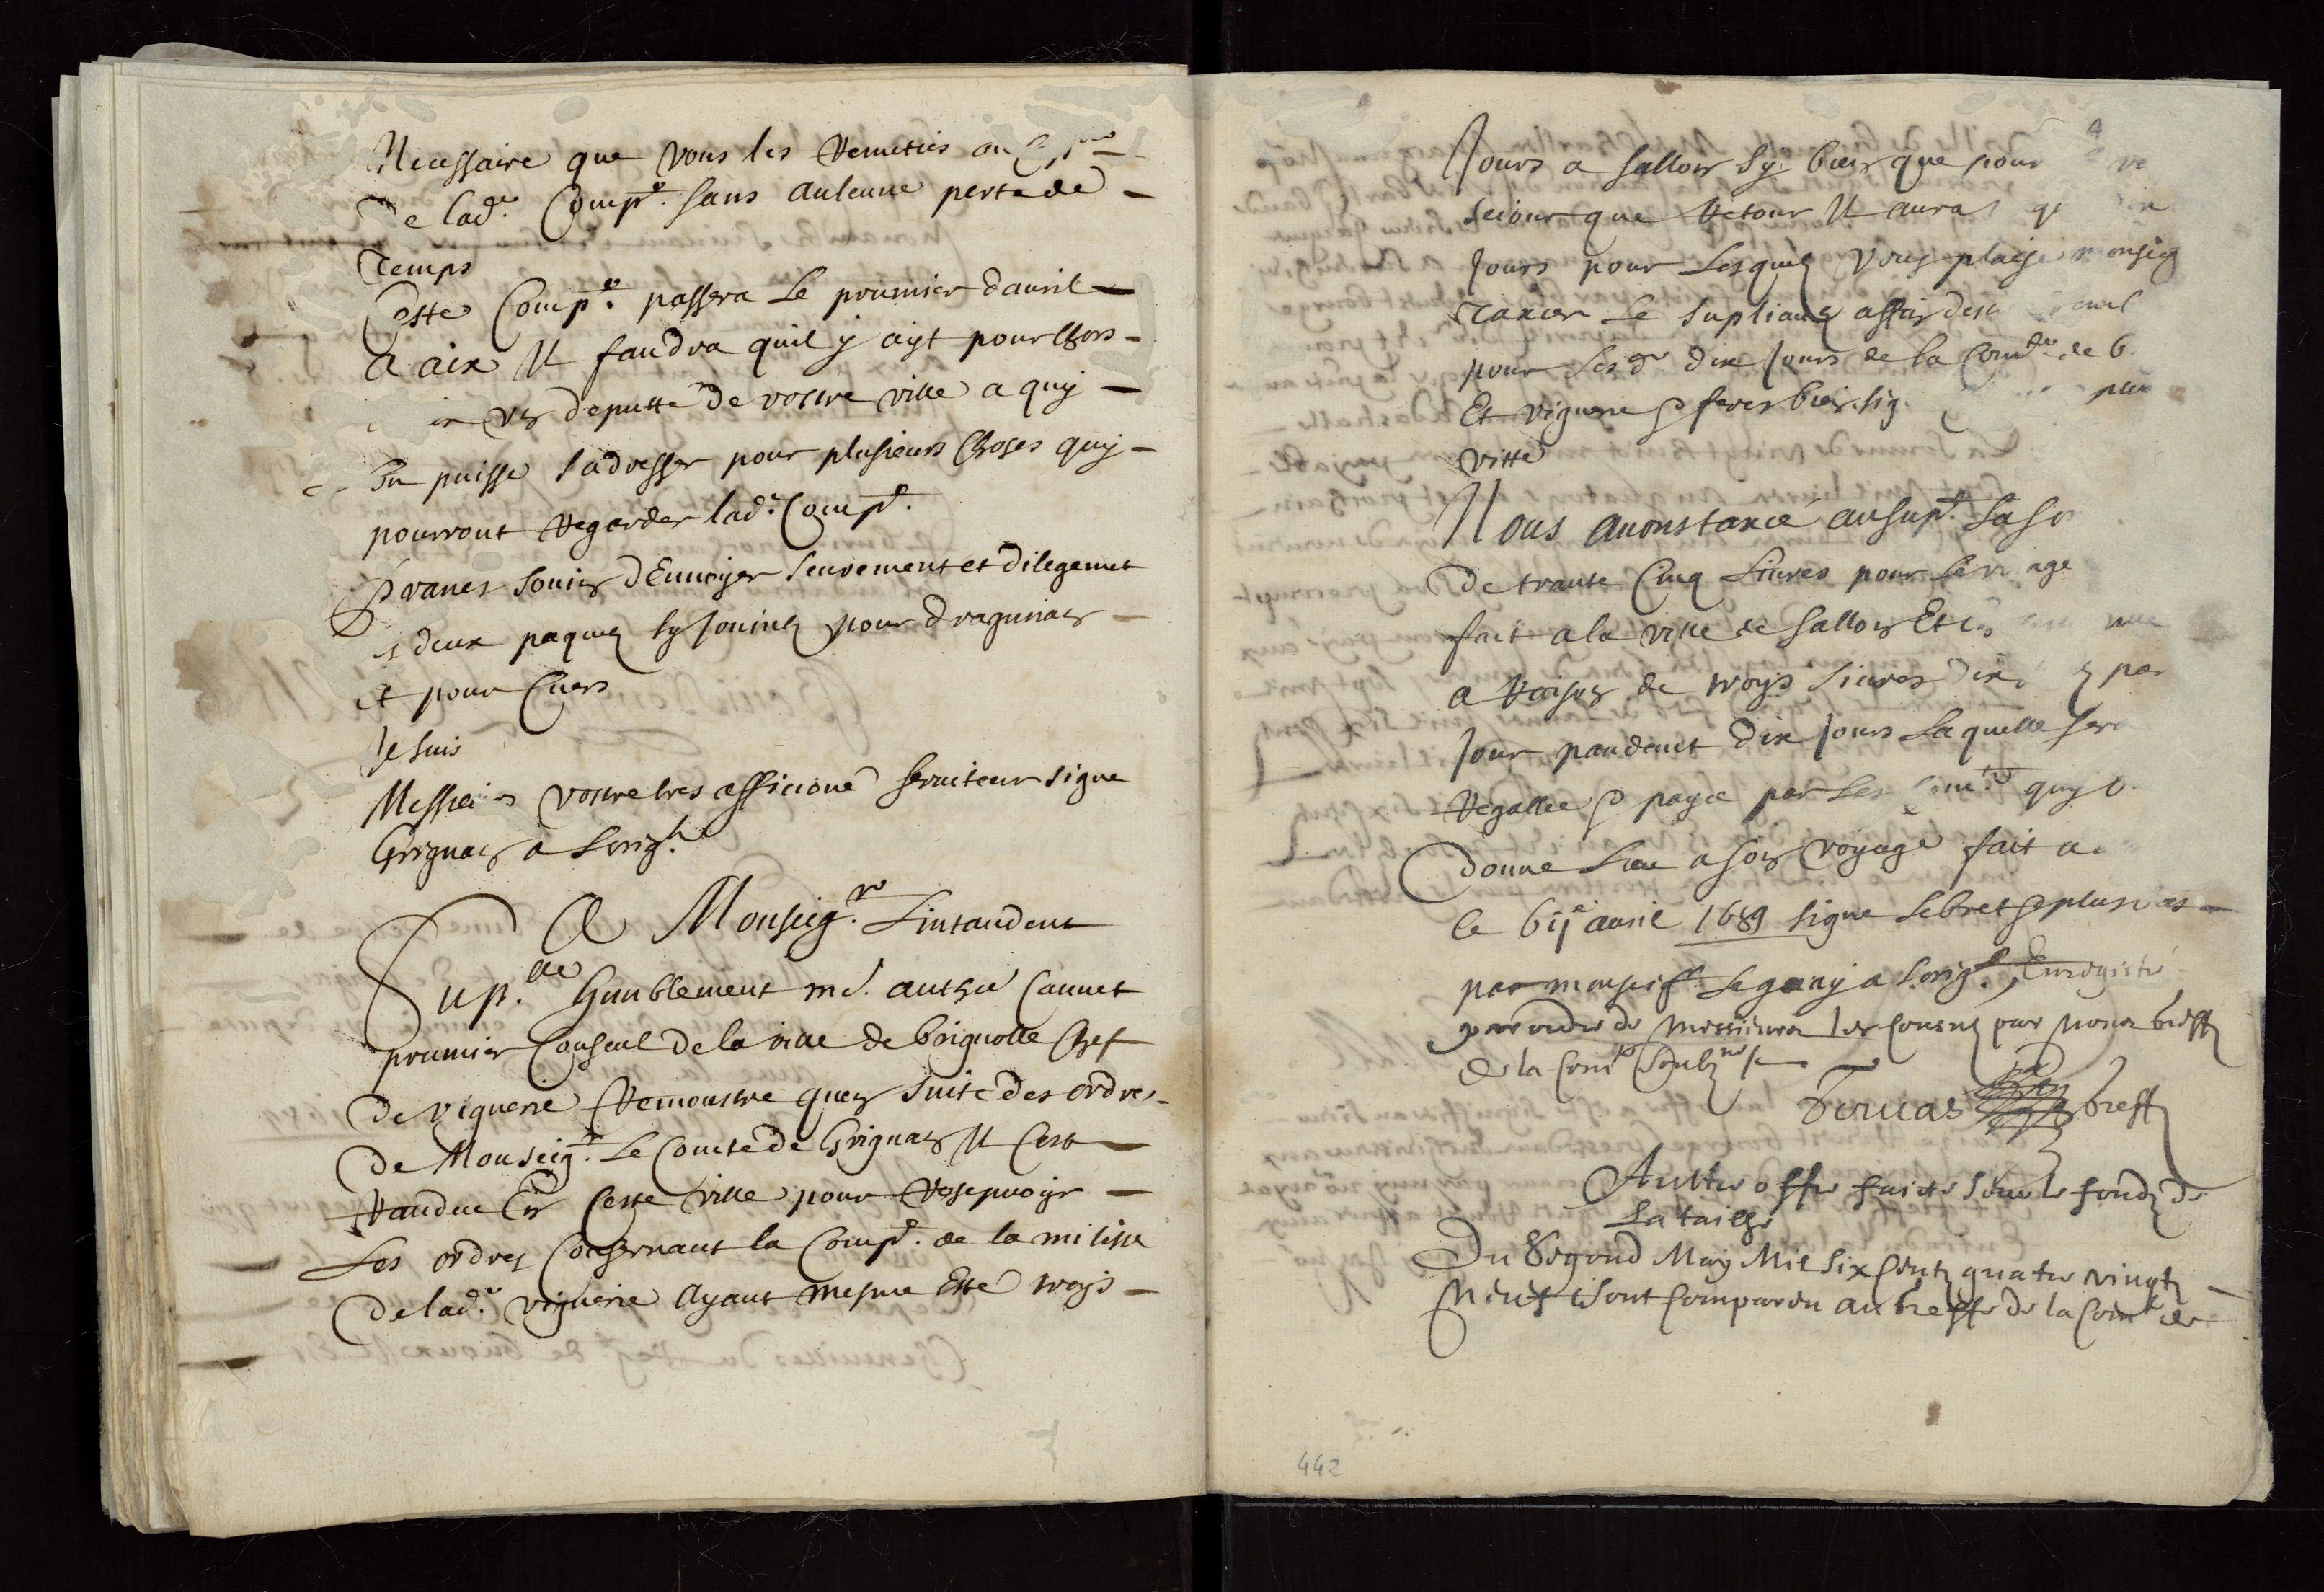 Necessaire que vous les remeties au
De lad.e Comp.e sans aulcune perte de
Temps
Cette Comp.e passera le prumier dauril
a aix Il faudra quil y ayt pour lhors
un deputte de vostre ville a quy
On puisse sadresser pour plusieurs choses quy
pourront regarder lad.e Comp.e
Prenes souin dEnuoyer seurement et diligemet
deux paquez sy Joinz pour draguinan
et pour Cuers
Je suis
Messieurs vostre tres affictioné seruiteur signe
Grignan a Lorig.l
A Monseig.r Lintandent
Sup.lie humblement m.e authe Cannet
prumier Conseul de la ville de brignolle Chef
De viguerie Remonstre quen suite des ordres
De Monseig.r Le Comte de Grignan Il cest
Randue En ceste ville pour Resepuoyr
Les ordres Consernant la Comp.e de la milisse
De lad.e viguerie ayant mesme Esté troys
4
Jours a sallon sy bien que pour
seiour que Retour Il aura
Jours pour Lesquelz vous plaise monseig
Taxer Le supliant affin dest
pour Lesd. dix Jours de la Com.té de b
Et viguerie & feres bien. sig
vitté
Nous auons taxcé au sup.t la so
De trante Cinq Liures pour le
fait a la ville de sallon Et
a Raison de troys Liures dix par
Jour pandent dix Jours Laquelle sera
Regallee & payee par Les quy
Donne Lieu a son voyage fait a
le 6ij.e auril 1689 signe Lebret & plus bas
par monseig.r Leguay a Lorig.l, Enregistré
par ordre de messieurs les Consuz par nous greff
de la Com.té Soubz.né
Fournas greff
Aultre offre faicte sur le fondz de
La tailhe
Du Segond May Mil six Centz quatre vingtz
Neuf Sont Comparëu au greffe de la Com.té de
442